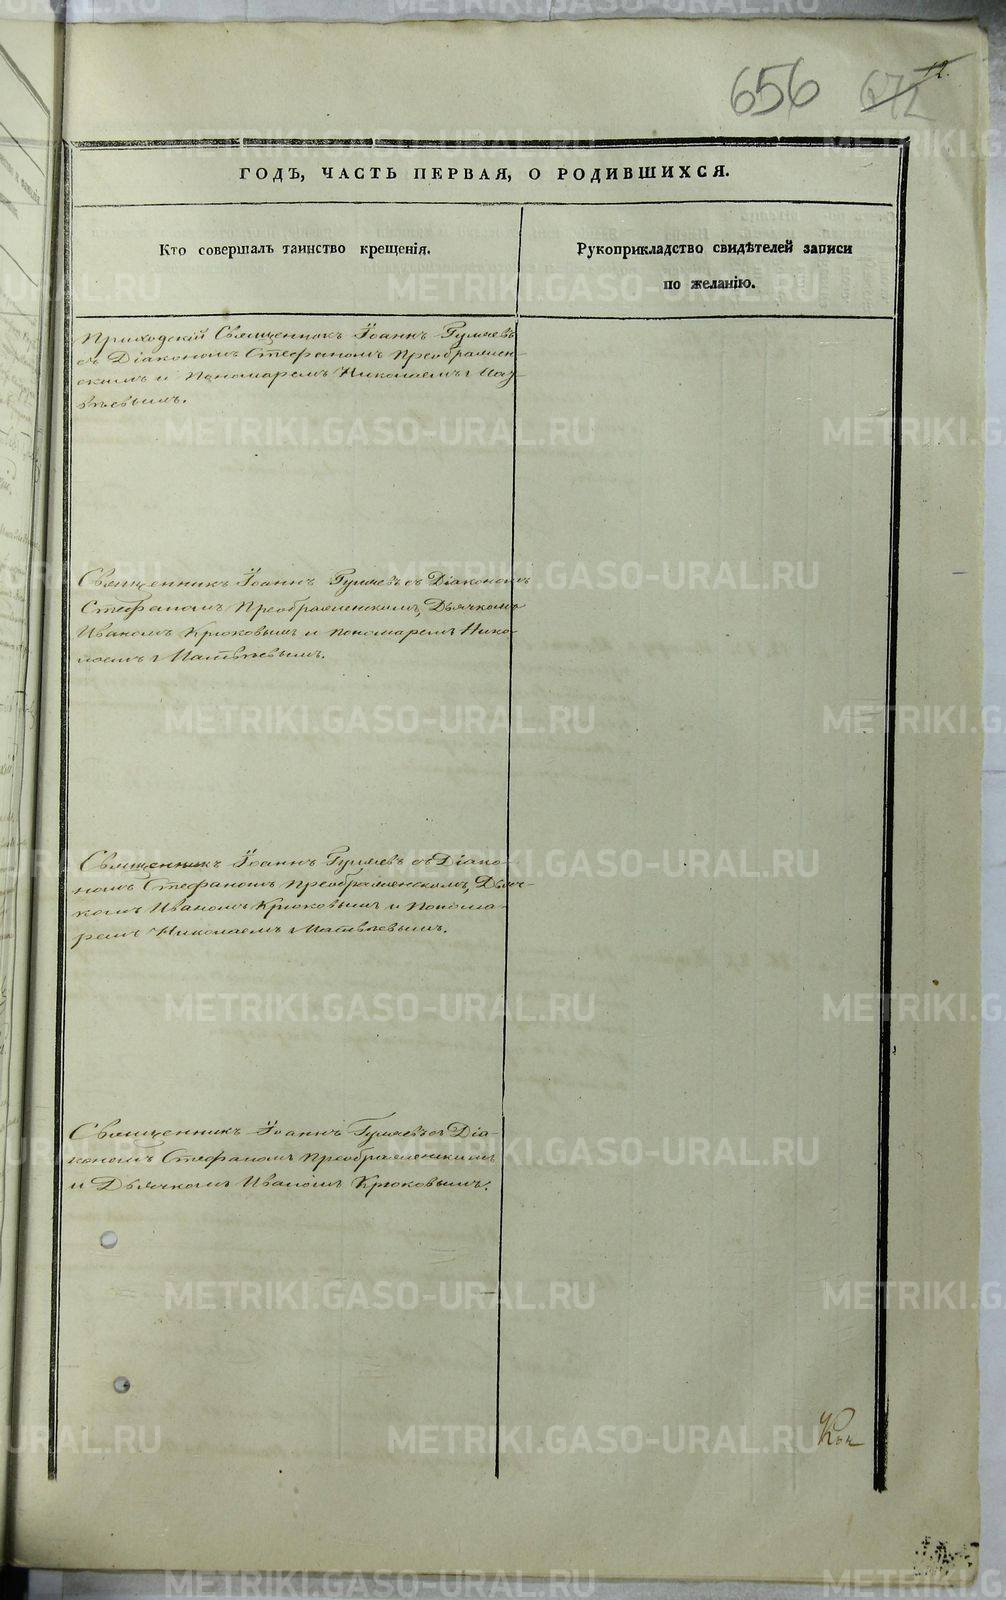 656
12.
ГОДЪ, ЧАСТЬ ПЕРВАЯ, О РОДИВШИХСЯ.
Кто совершалъ таинство крещенія.
Рукоприкладство свидѣтелей записи
по желанію.
Приходскій Священникъ Іоаннъ Гуляевъ
съ Діакономъ Стефаномъ Преображен-
скимъ и Пономаремъ Николаемъ Мат-
вѣевымъ.
Священникъ Іоаннъ Гуляевъ съ Діакономъ
Стефаномъ Преображенскимъ, Дьячкомъ
Иваномъ Крюковымъ и пономаремъ Нико-
лаемъ Матвѣевымъ.
Священникъ Іоаннъ Гуляевъ съ Діако-
номъ Стефаномъ Преображенскимъ, Дьяч-
комъ Иваномъ Крюковымъ и Понома-
ремъ Николаемъ Матвѣевымъ.
Священникъ Іоаннъ Гуляевъ съ Діа-
кономъ Стефаномъ Преображенскимъ
и Дьячкомъ Иваномъ Крюковымъ.
METRIKI.GASO-URAL.RU